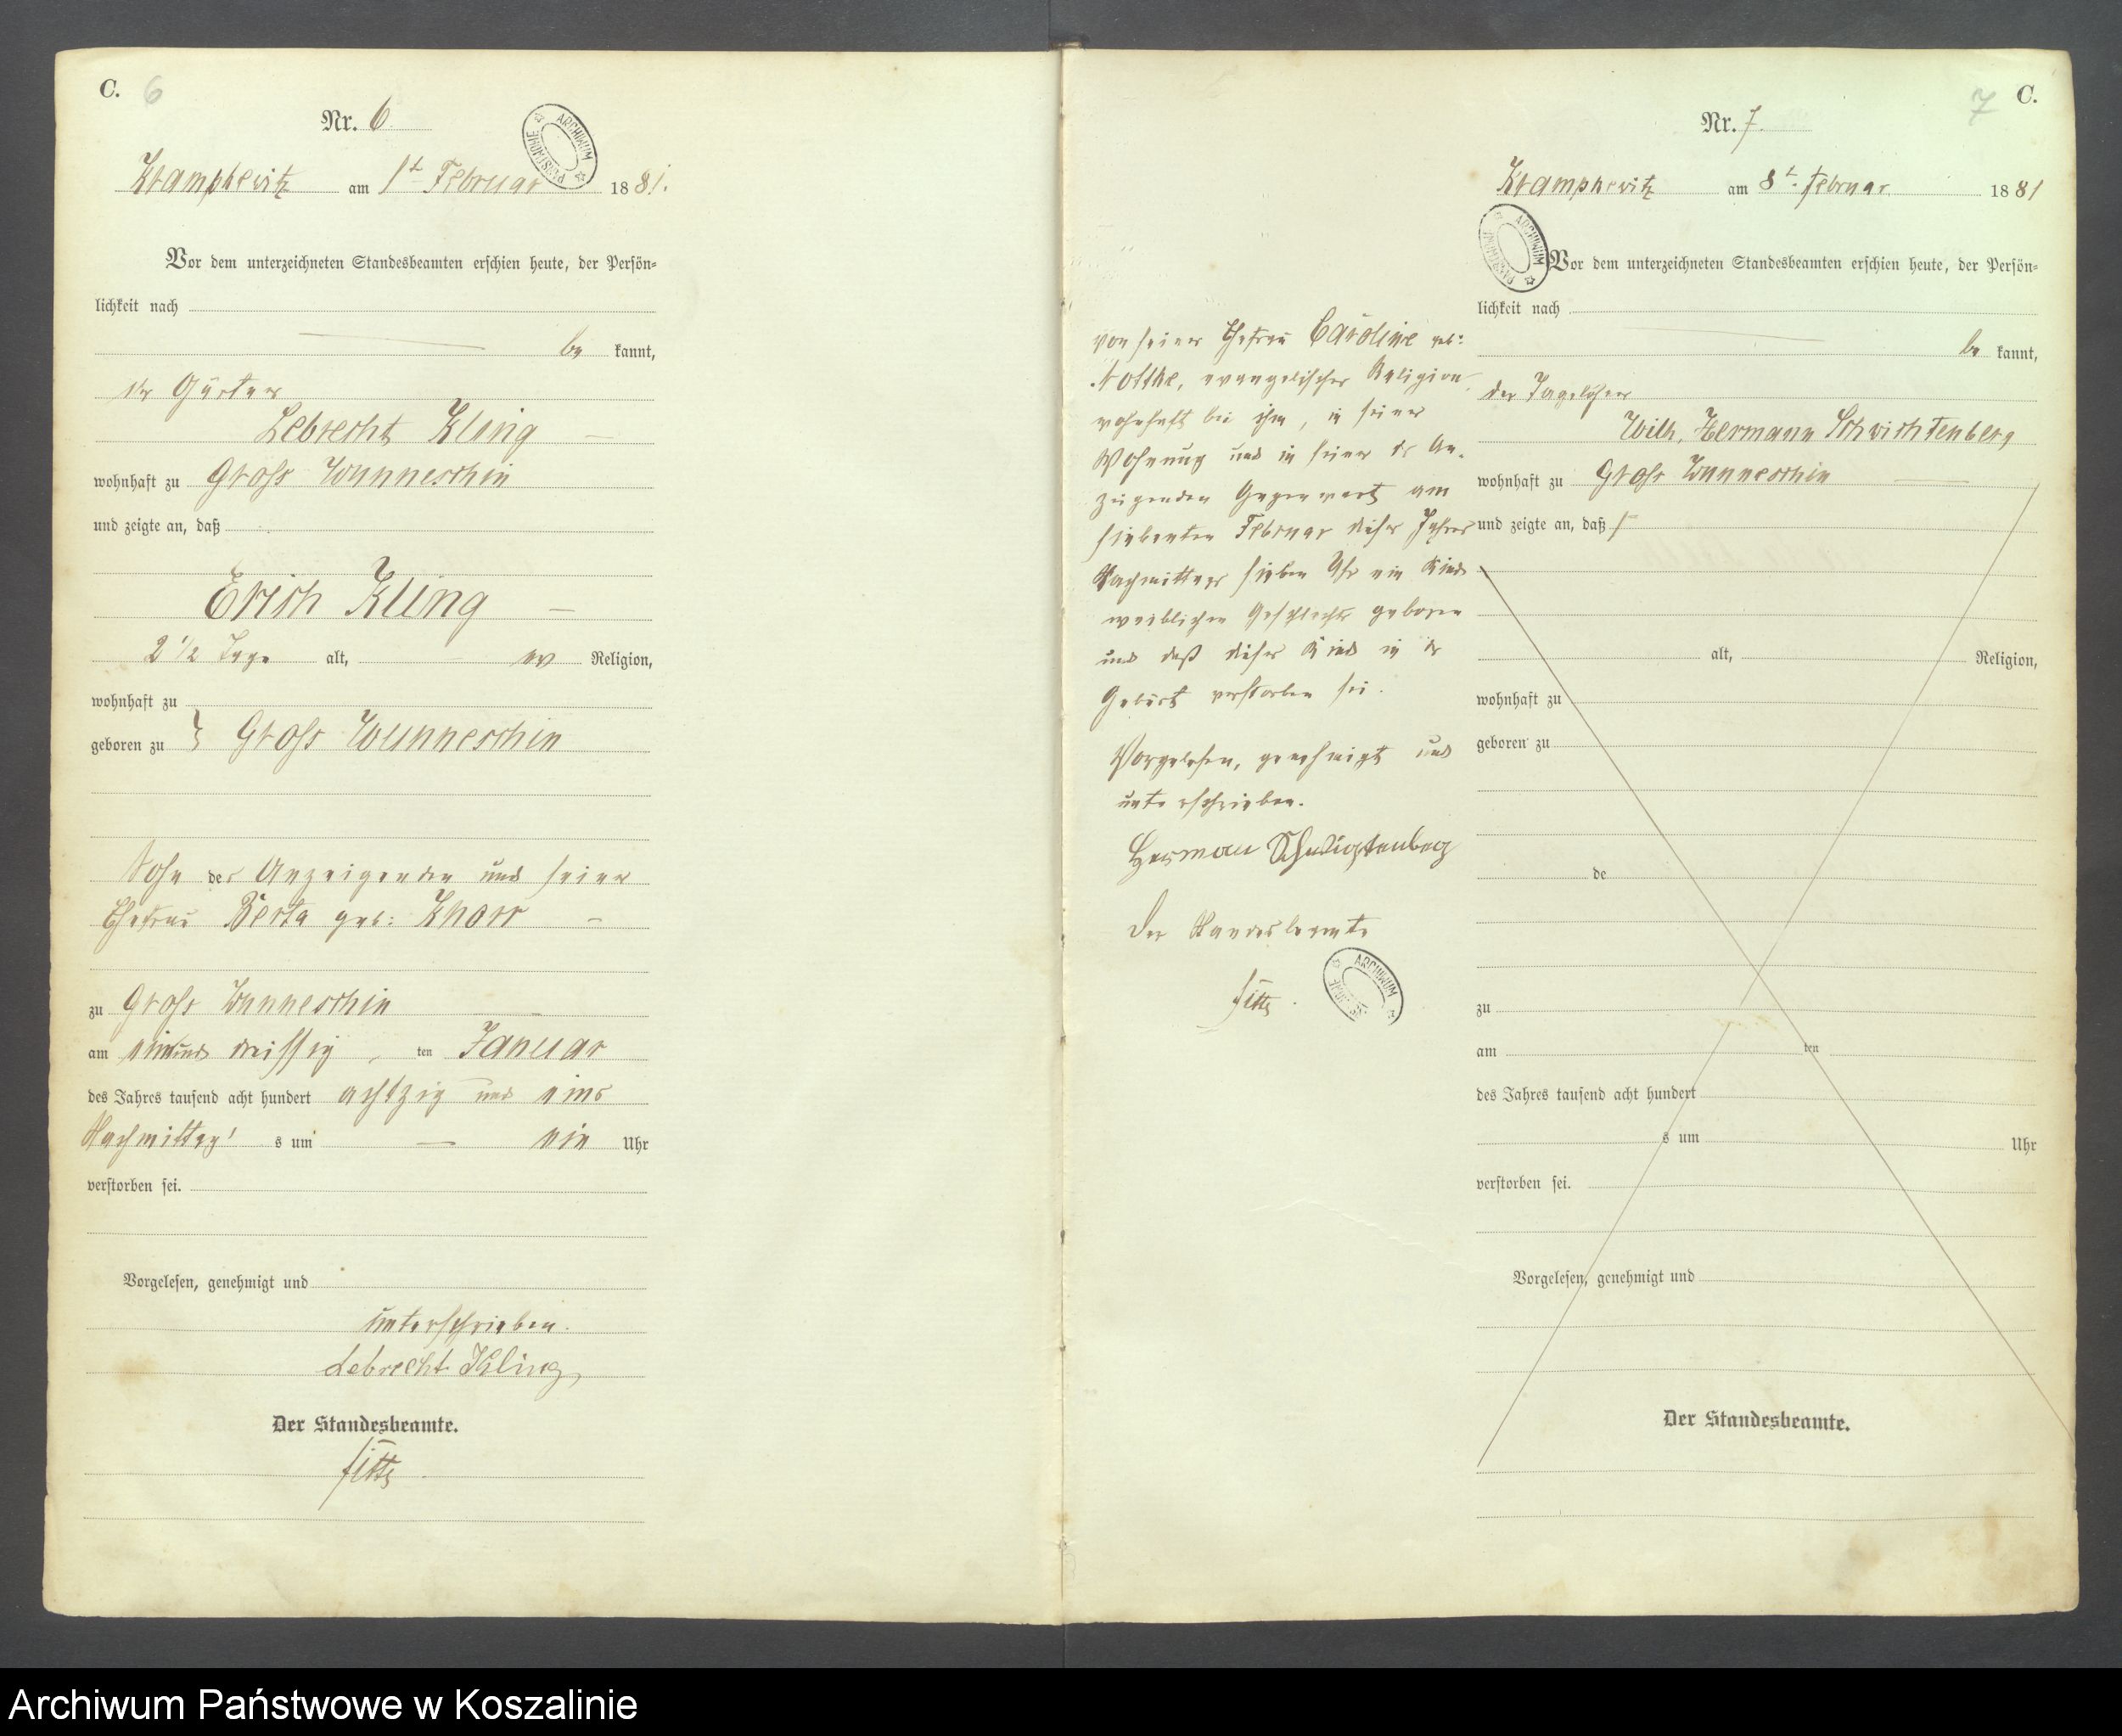 C. 6
Nr. 6
ARCHIWUM PAŃSTWOWE
Krampkewitz am 1t Februar 1881.
Vor dem unterzeichneten Standesbeamten erschien heute, der Persön=
lichkeit nach
be kannt,
der Gärtner
Lebrecht Kling
wohnhaft zu Gross Wunneschin
und zeigte an, daß
Erich Kling
2 1/2 Tage alt, ev Religion,
wohnhaft zu
geboren zu } Gross Wunneschin
Sohn des Anzeigenden und seiner
Ehefrau Berta geb: Knorr
zu Gross Wunneschin
am einund dreissig ten Januar
des Jahres tausend acht hundert achtzig und eins
Nachmittag s um ein Uhr
verstorben sei.
Vorgelesen, genehmigt und
unterschrieben.
Lebrecht Kling
Der Standesbeamte.
7 C.
Nr. 7.
Krampkewitz am 8t. Februar 1881
ARCHIWUM PAŃSTWOWE
Vor dem unterzeichneten Standesbeamten erschien heute, der Persön=
lichkeit nach
be kannt,
der Tagelöhner
Wilh. Hermann Schwichtenberg
wohnhaft zu Gross Wunneschin
und zeigte an, daß
von seiner Ehefrau Caroline geb:
Nottke, evangelischer Religion,
wohnhaft bei ihm, in seiner
Wohnung und in seiner des An=
zeigenden Gegenwart am
siebenten Februar dieses Jahres
Nachmittags sieben Uhr ein Kind
weiblichen Geschlechts geboren
und daß dieses Kind in der
Geburt verstorben sei.
Vorgelesen, genehmigt und
unterschrieben.
Herman
Der Standesbeamte
ARCHIWUM
alt, Religion,
wohnhaft zu
geboren zu
de
zu
am ten
des Jahres tausend acht hundert
s um Uhr
verstorben sei.
Vorgelesen, genehmigt und
Der Standesbeamte.
Archiwum Państwowe w Koszalinie